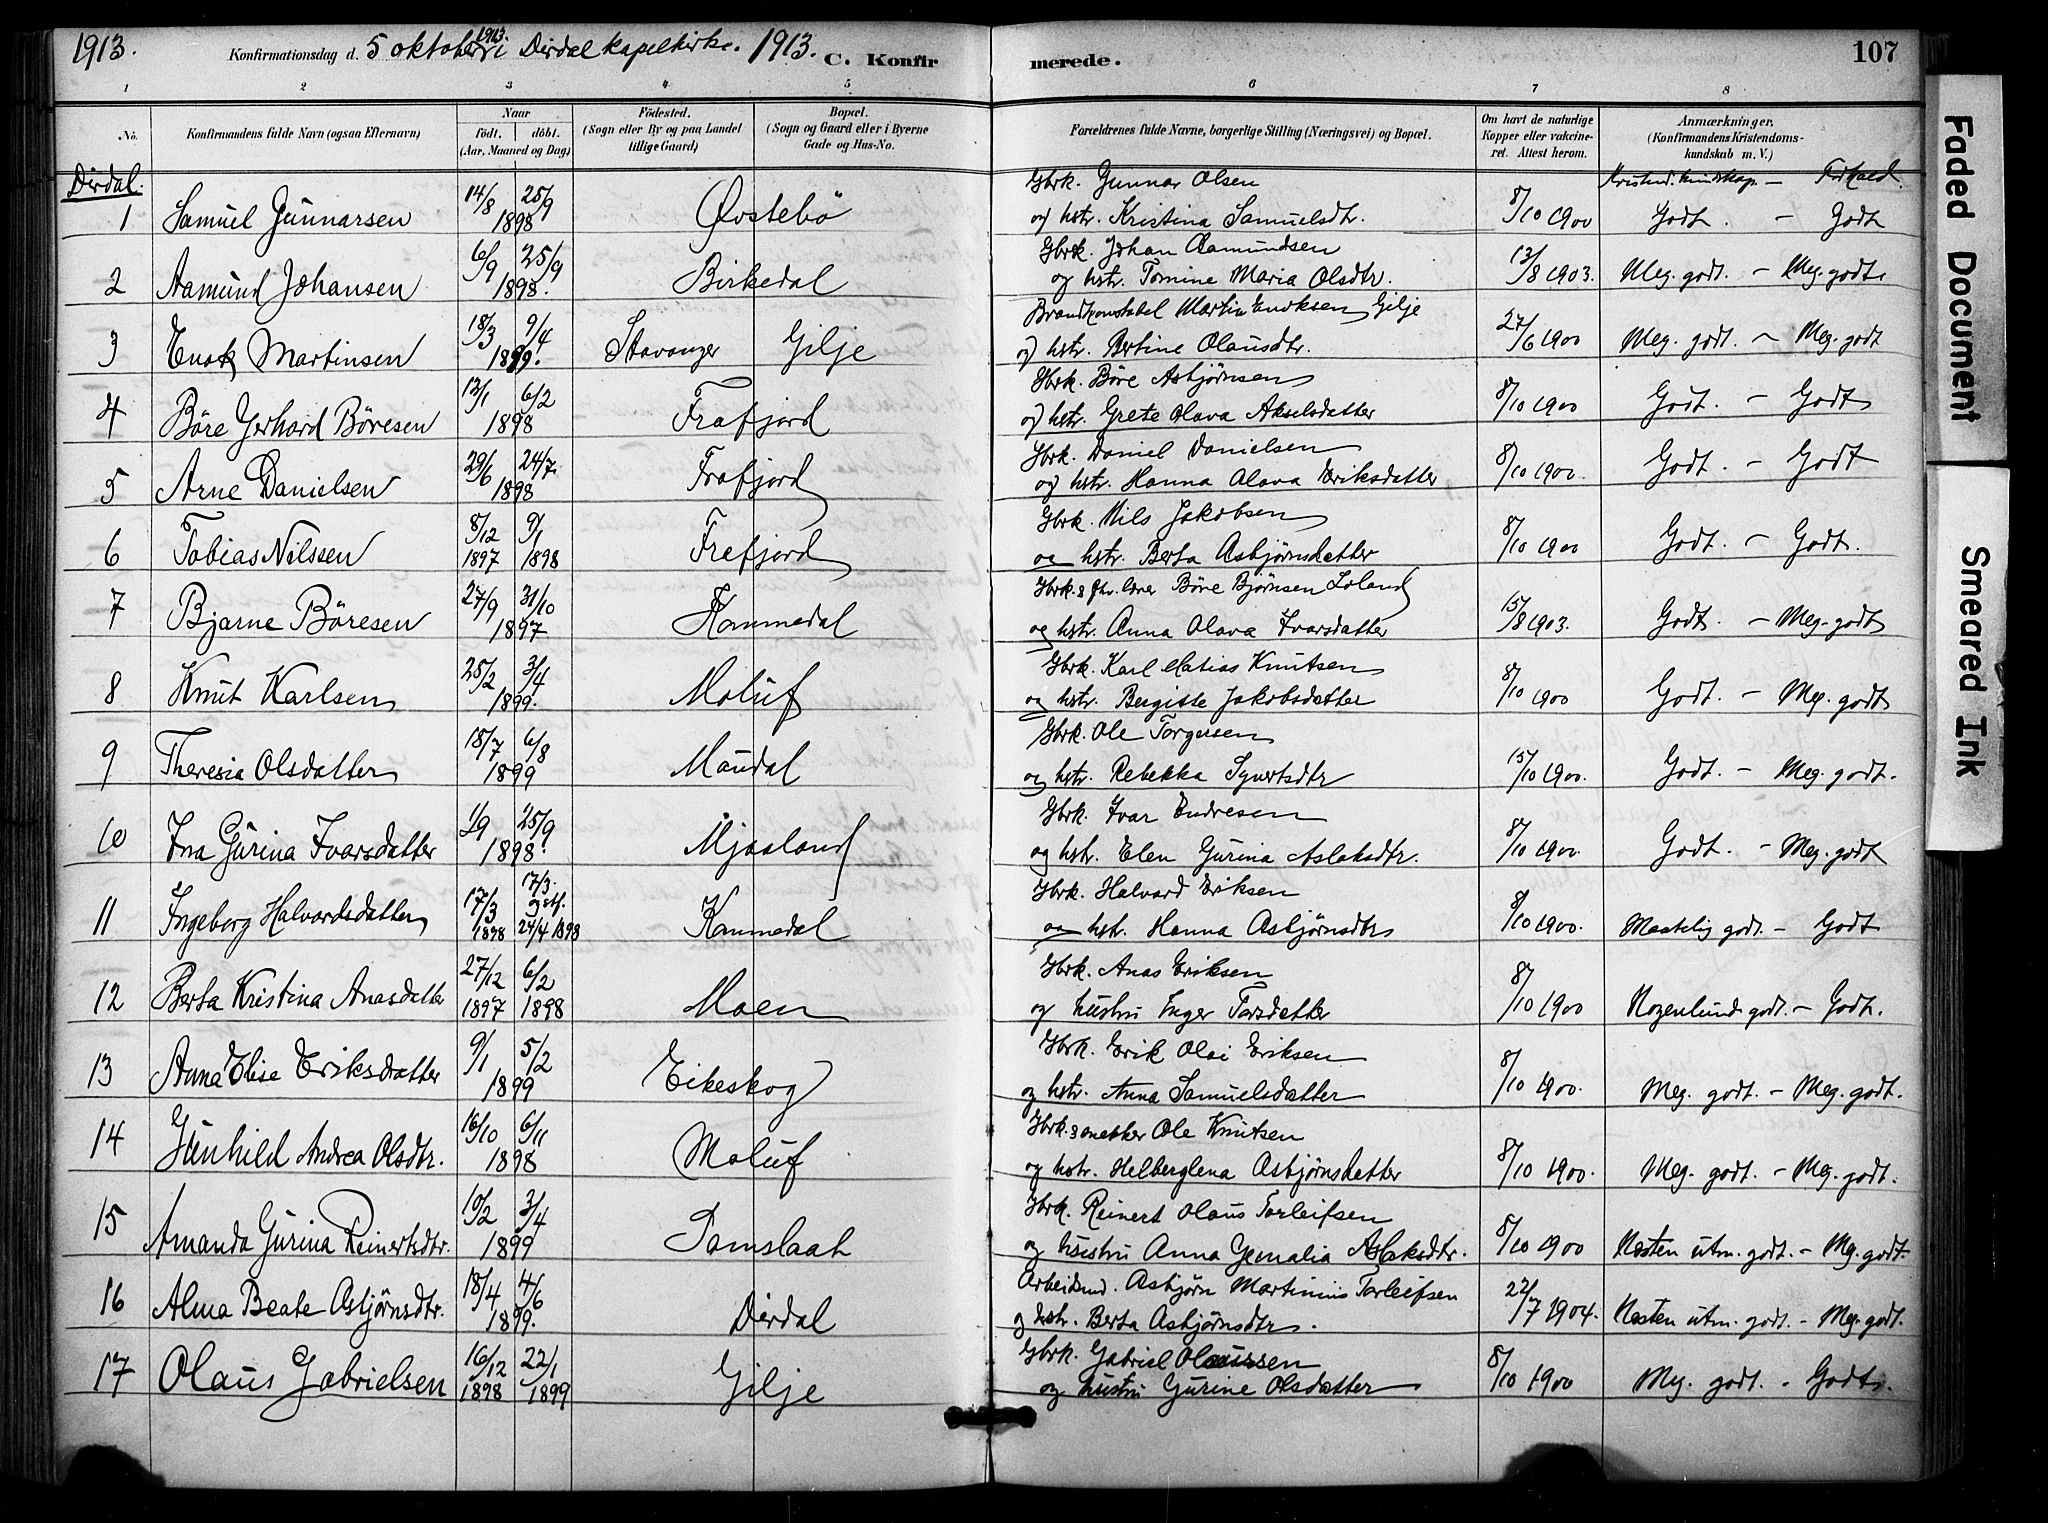 1913. Konfirmationsdag d. 5 oktober 1913. i Dirdal kapelkirke. 1913. C. Konfirmerede. 107
1 2 3 4 5 6 7 8
No. Konfirmandens fulde Navn (ogsaa Efternavn) Naar födt. döbt. (Aar, Maaned og Dag) Födested. (Sogn eller By og paa Landet tillige Gaard) Bopæl. (Sogn og Gaard eller i Byerne Gade og Hus-No. Forældrenes fulde Navne, borgerlige Stilling (Næringsvei) og Bopæl. Om havt de naturlige Kopper eller vakcineret. Attest herom. Anmærkninger, (Konfirmandens Kristendomskundskab m. V.)
Dirdal. Kristend. kundskap. — Forhold.
1 Samuel Gunnarsen 14/8 25/9 1898 Øvstebö Gbrk. Gunnar Olsen
og hstr. Kristina Samuelsdtr. 8/10 1900 Godt. — Godt
2 Aamund Johansen 6/9 25/9 1898. Birkedal Gbrk. Johan Aamundsen
og hstr. Tomine Maria Olsdtr. 13/8 1903. Meg. godt. — Meg. godt.
3 Enok Martinsen 18/3 9/4 1899. Stavanger Gilje Brandkonstabel Martin Enoksen Gilje
og hstr. Bertine Olausdtr. 27/6 1900 Meg. godt. — Meg. godt
4 Böre Gerhard Böresen 13/1 6/2 1898 Frafjord Gbrk. Böre Asbjørnsen
og hstr. Grete Olava Akselsdatter 8/10 1900 Godt. — Godt
5 Arne Danielsen 29/6 24/7. 1898 Frafjord Gbrk. Daniel Danielsen
og hstr. Hanna Olava Eriksdatter 8/10 1900. Godt. — Godt
6 Tobias Nilssen 8/12 1897 9/1 1898 Frafjord Gbrk. Nils Jakobsen
og hstr. Berta Asbjørnsdatter 8/10 1900 Godt. — Godt.
7 Bjarne Böresen 27/9 31/10 1897 Kommedal Gbrk. & Böre Bjørnsen Loland
og hstr. Anna Olava Ivarsdatter 15/8 1903. Godt. — Meg. godt
8 Knut Karlsen 25/2 3/4 1899. Moluf Gbrk. Karl Matias Knutsen
og hstr. Bergitte Jakobsdatter 8/10 1900 Godt. — Meg. godt
9 Theresia Olsdatter 18/7 6/8 1899 Maudal Gbrk. Ole Torgersen
og hstr. Rebekka Syvertsdtr 15/10 1900. Godt. — Meg. godt.
10 Ina Gurina Ivarsdatter 1/9 25/9 1898. Mjaaland Gbrk. Ivar Endresen
og hstr. Elen Gurina Aslaksdtr. 8/10 1900. Godt. — Meg. godt
11 Ingeborg Halvardsdatter 17/3 1898 17/3. og stf. 24/4 1898 Kommedal Gbrk. Halvard Eriksen
og hstr. Hanna Asbjørnsdtr 8/10 1900. Maatelig godt. — Godt
12 Berta Kristina Anasdatter 27/12 1897 6/2 1898 Moen Gbrk. Anas Eriksen
og hustru Inger Tarsdatter 8/10 1900 Nogenlund godt. — Godt.
13 Anna Elise Eriksdatter 9/1 5/2 1899 Eikeskog Gbrk. Erik Olai Eriksen
og hstr. Anna Samuelsdatter 8/10 1900. Meg. godt. — Meg. godt.
14 Gunhild Andrea Olsdtr. 16/10 6/11 1898 Moluf Gbrk. & snekker Ole Knutsen
og hstr. Helberglena Asbjørnsdatter 8/10 1900. Meg. godt. — Meg. godt.
15 Amanda Gurina Reinertsdtr. 10/2 3/4 1899 Tamslaat Gbrk. Reinert Olaus Torleifsen
og hustru Anna Aslaksdtr. 8/10 1900 Næsten utm. godt. — Meg. godt.
16 Alma Beate Asbjørnsdtr. 18/4 4/6 1899. Dirdal Arbeidsmd. Asbjørn Martinius Torleifsen
og hstr. Berta Asbjørnsdtr. 22/7 1904. Næsten utm. godt. — Meg. godt.
17 Olaus Gabrielsen 16/12 1898 22/1 1899 Gilje Gbrk. Gabriel Olaussen
og hustru Gurine Olsdatter 8/10 1900 Meg. godt. — Godt.
Faded Document
Smeared Ink